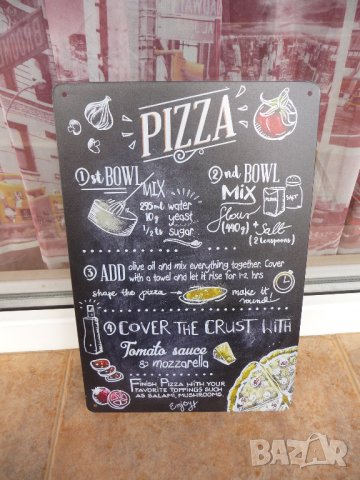 PIZZA
1 st BOWL
MIX
295ml water
10g yeast
1/2 ts sugar
2 nd BOWL
MIX
FLOUR
SALT
flour
(440g) + Salt
(2 teaspoons)
3 ADD olive oil and mix everything together. Cover
with a towel and let it rise for 1-2 hrs
shape the pizza make it
round!
4 COVER THE CRUST WITH
Tomato sauce
& mozzarella
FINISH PIZZA WITH YOUR
FAVORITE TOPPINGS SUCH
AS SALAMI, MUSHROOMS.
Enjoy!
BAZAR